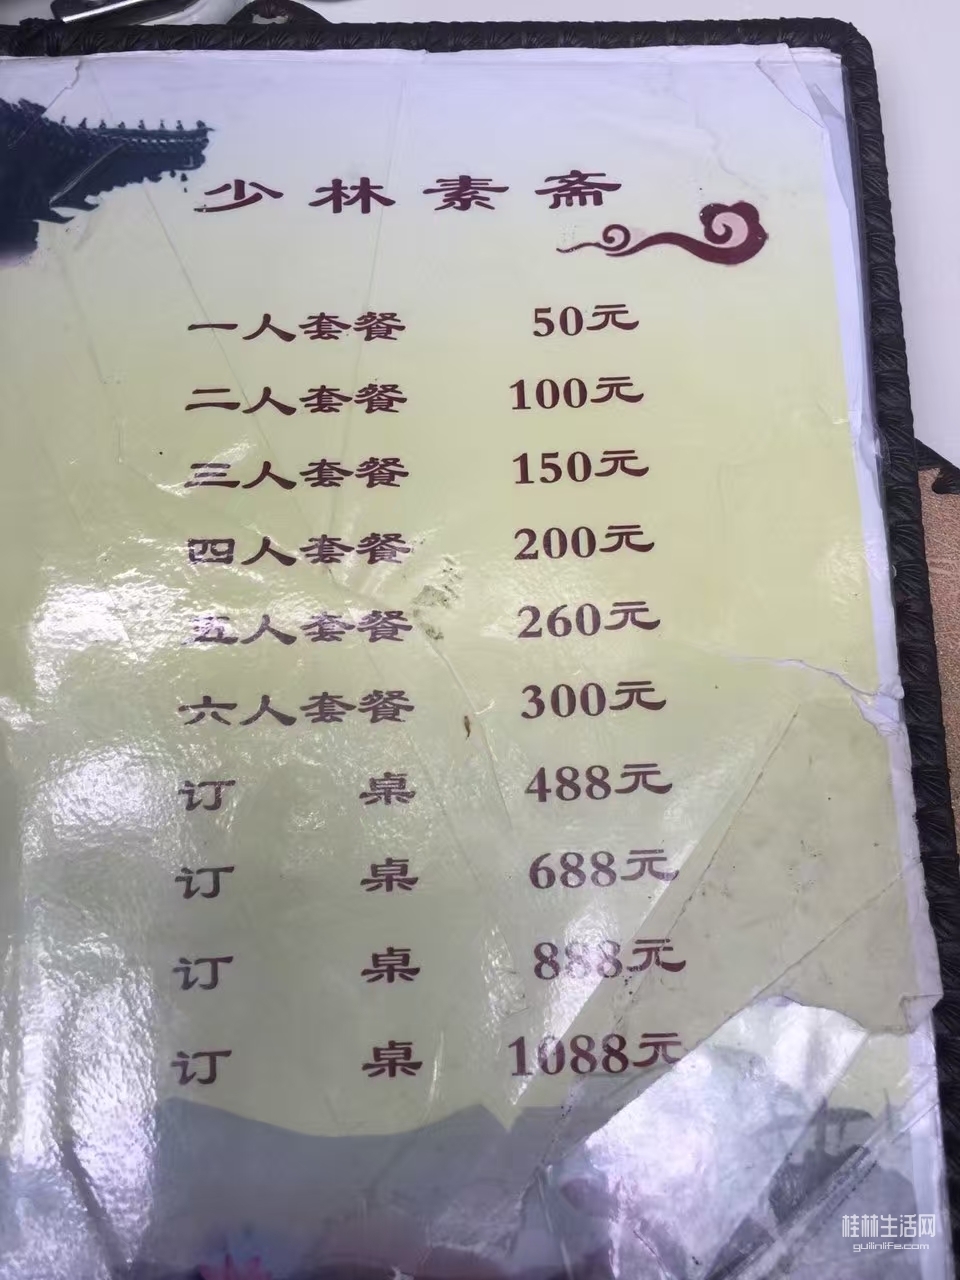 少林素斋
一人套餐 50元
二人套餐 100元
三人套餐 150元
四人套餐 200元
五人套餐 260元
六人套餐 300元
订桌 488元
订桌 688元
订桌 888元
订桌 1088元
桂林生活网
guilinlife.com